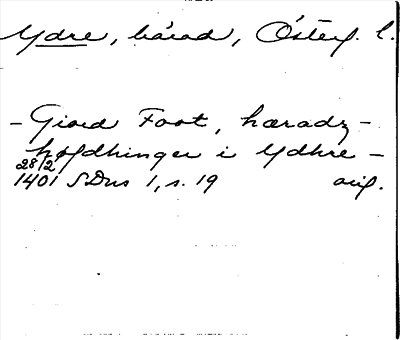 Ydre, härad, Österg. l.
– Giord Foot, hæradz –
høfdhinger i Ydhre –
28/2
1401 SDns 1, s. 19 orig.